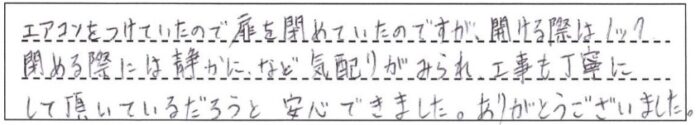 エアコンをつけていたので扉を閉めていたのですが、開ける際はノック
閉める際には静かに、など気配りがみられ工事も丁寧に
して頂いているだろうと安心できました。ありがとうございました。